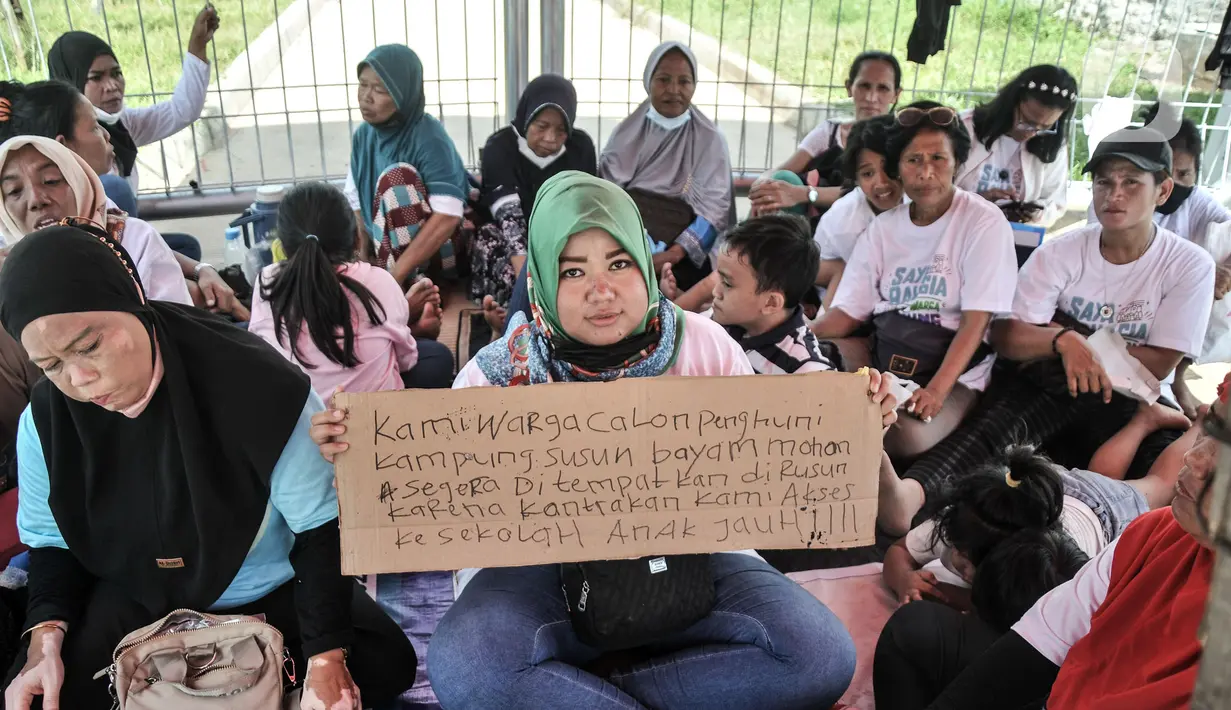 Kami Warga Calon Penghuni
Kampung susun bayam mohon
segera Ditempatkan di Rusun
karena kontrakan kami Akses
ke sekolah Anak Jauh!!!!
SAYO
BANGGA
WARGA
SAYO
WARGA